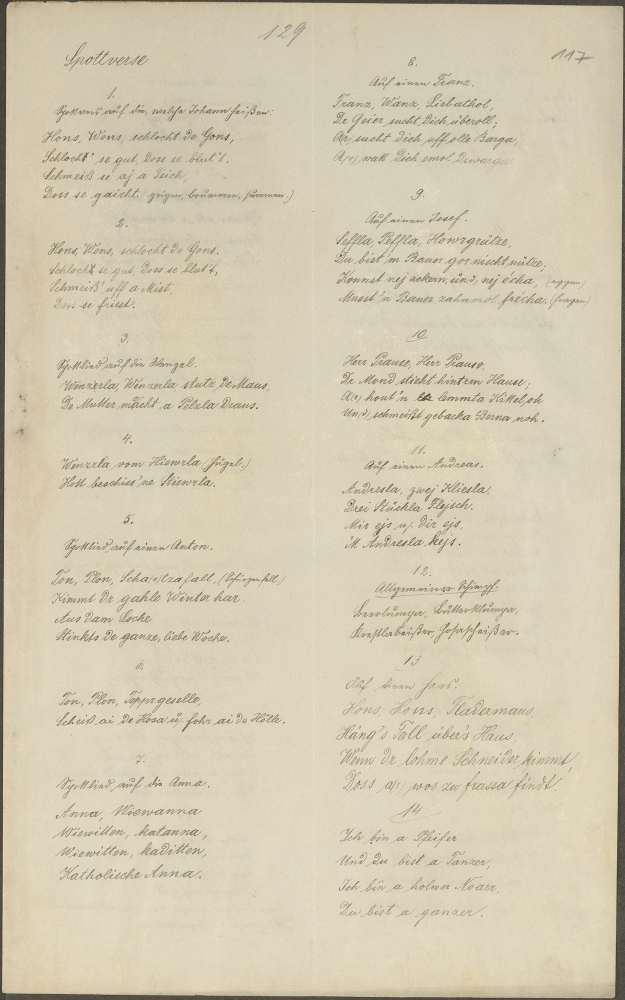 129
117
Spottverse
1.
Spottvers auf die, welche Johann heißen:
Hons, Wons, schlocht de Gons,
Schlocht' se gut, Doss se blut't.
Schmeiß se ai a Teich,
Doss se gaicht.
2.
Hons, Wons, schlocht de Gons.
Schlocht se gut, Doss se blut't,
Schmeiß' uff a Mist,
Doss se friest.
3.
Spottlied auf die Wenzel.
Wenzerla, Wenzerla stutz de Maus,
De Mutter macht a Pelzla draus.
4.
Wenzrla vom Hiewrla (Hügel.)
Hott beschiss'ne Stiewrla.
5.
Spottlied auf einen Anton.
Ton, Plon, (Schürzenfell)
Kimmt dr gahle Winter har
Aus dam Loche
Stinkts de ganze, liebe Woche.
6.
Ton, Plon, Topprgeselle,
Scheiß ai de Hosa u. fohr ai de Hölle.
7.
Spottlied auf die Anna.
Anna, Wiewanna
Wiewitten, katanna,
Wiewitten, kaditten,
Katholische Anna.
8.
Auf einen Franz.
Franz, Wanz, Liebathol,
De Geier sucht Dich überoll;
A(r) sucht Dich uff olle Barga,
A(r) wätt Dich emol Dewarga
9.
Auf einen Josef.
Seffla, Peffla, Howrgrütze,
Du bist'm Bauer gor nischt nütze,
Konnst nej ackern, und nej écha, (eggen)
Musst'n Bauer zahnmol frécha. (fragen)
10.
Herr Prause, Herr Prause,
De Mond stickt hintrm Hause;
A(r) hout'n lemmta Kittel oh
Un(d) schmeißt gebacka Berna noh.
11.
Auf einen Andreas.
Andresla, zwej Kliesla,
Drei Stückla Flejsch.
Mir ejs, u. dir ejs,
'M Andresla kejs.
12.
Allgemeiner Schimpf.
13
Auf einen Hans.
Hons, Hons, Fladermaus,
Häng's Fall über's Haus,
Wenn dr lohme Schneider kimmt,
Doss a(r) wos zu frassa findt.
14
Ich bin a Pfeifer
Und Du bist a Tanzer,
Ich bin a holwer Noarr,
Du bist a ganzer.